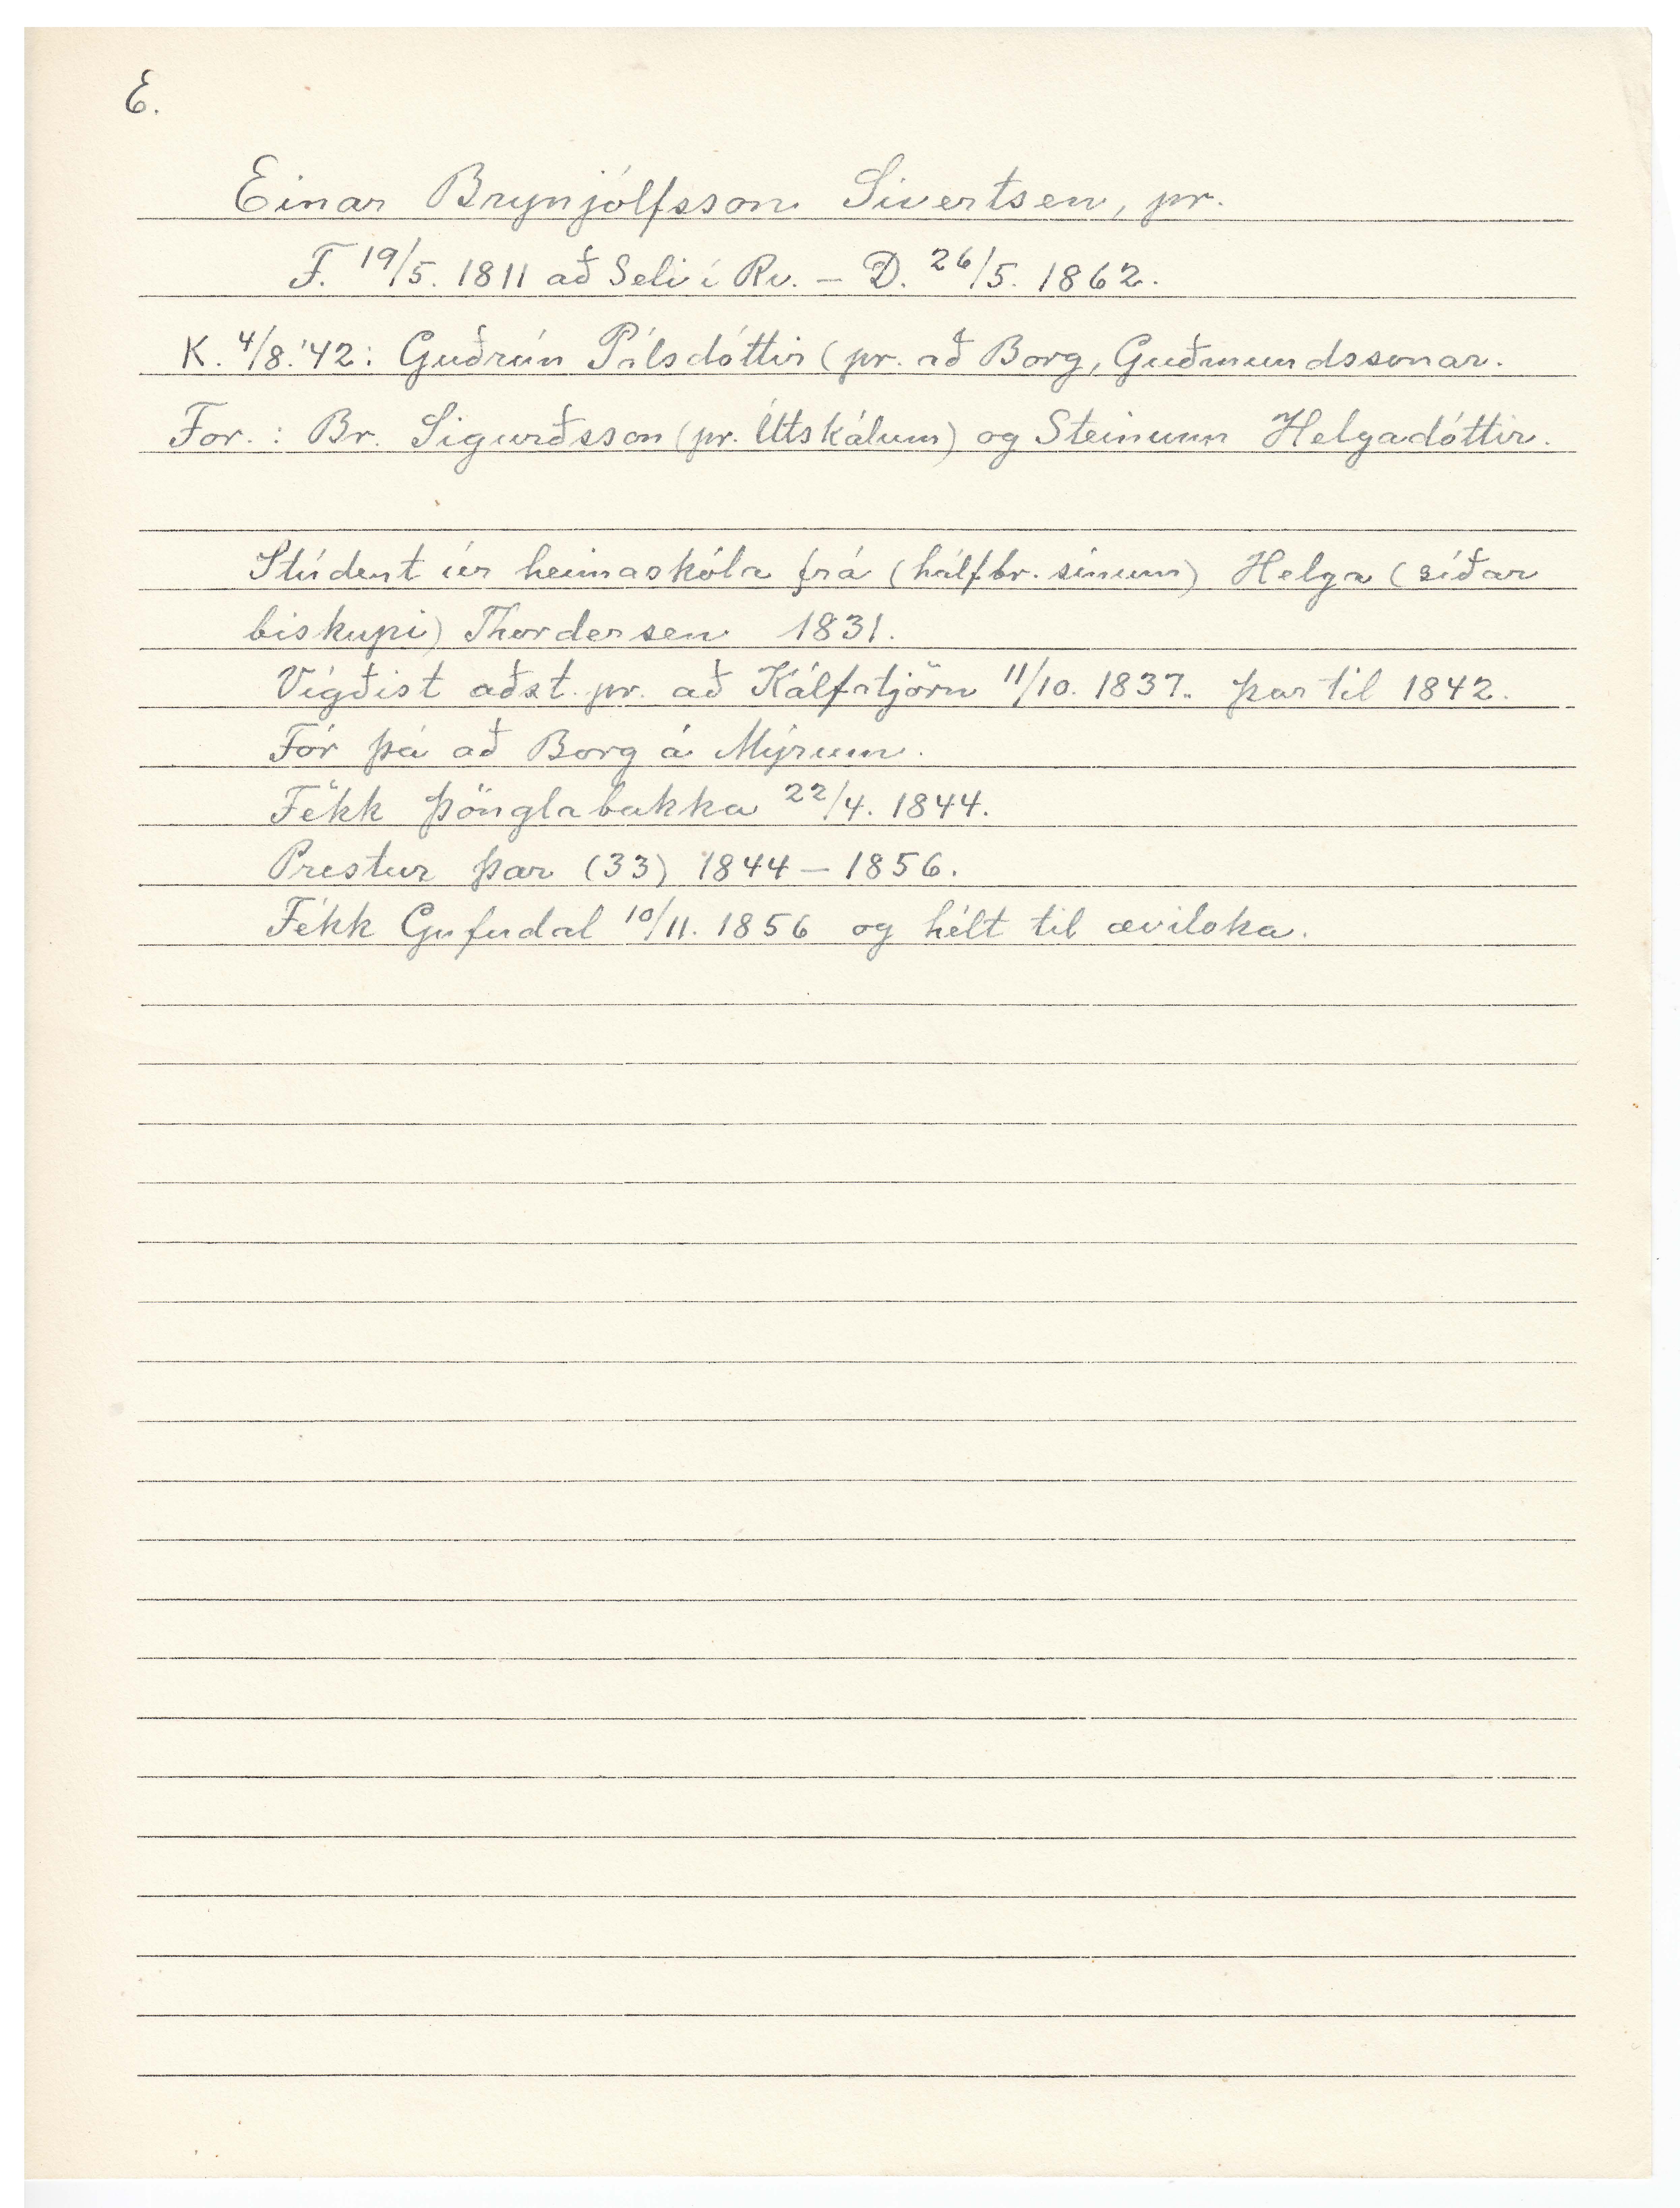 E.
Einar Brynjólfsson Sivertsen, pr.
F. 19/5. 1811 að Seli í Rv. – D. 26/5. 1862.
K. 4/8. '42: Guðrún Pálsdóttir (pr. að Borg, Guðmundssonar.
For.: Br. Sigurðsson (pr. Útskálum) og Steinunn Helgadóttir.
Stúdent úr heimaskóla frá (hálfbr. sínum) Helga (síðar
biskupi) Thordersen 1831.
Vígðist aðst. pr. að Kálfatjörn 11/10. 1837. Þar til 1842.
Fór þá að Borg á Mýrum.
Fékk Þönglabakka 22/4. 1844.
Prestur þar (33) 1844 – 1856.
Fékk Gufudal 10/11. 1856 og hélt til æviloka.